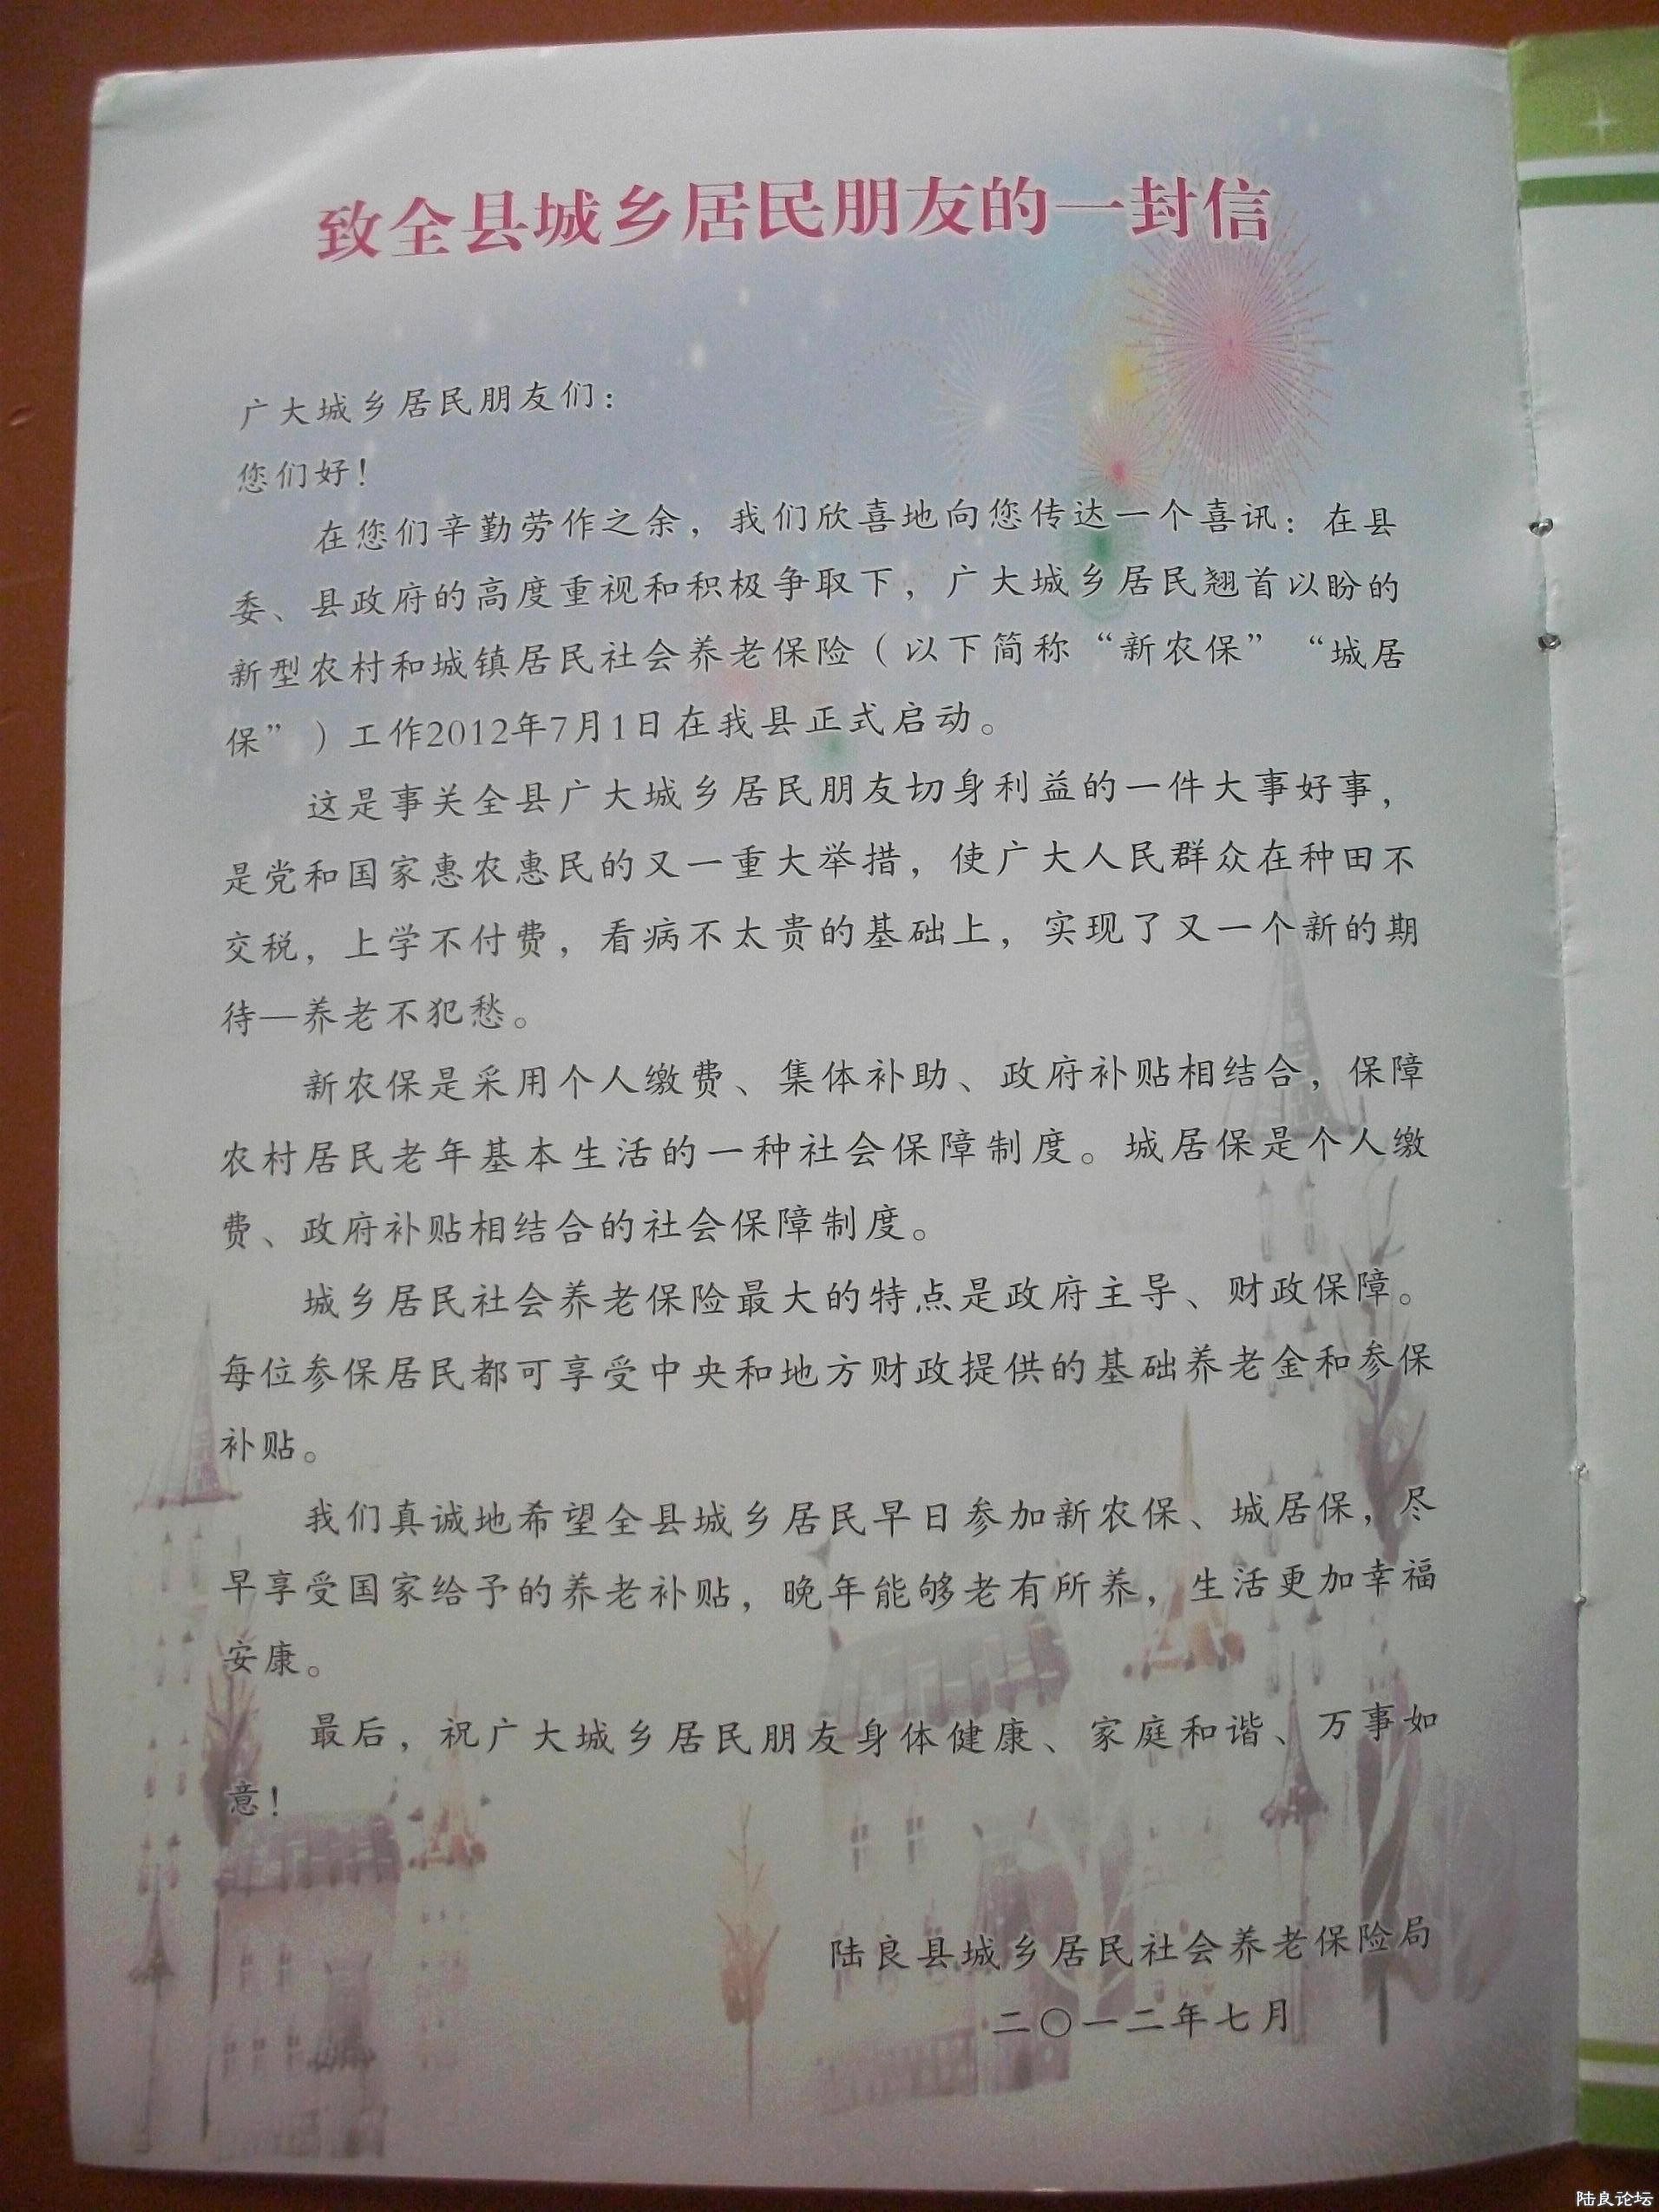 致全县城乡居民朋友的一封信
广大城乡居民朋友们：
您们好！
在您们辛勤劳作之余，我们欣喜地向您传达一个喜讯：在县
委、县政府的高度重视和积极争取下，广大城乡居民翘首以盼的
新型农村和城镇居民社会养老保险（以下简称“新农保”“城居
保”）工作2012年7月1日在我县正式启动。
这是事关全县广大城乡居民朋友切身利益的一件大事好事，
是党和国家惠农惠民的又一重大举措，使广大人民群众在种田不
交税，上学不付费，看病不太贵的基础上，实现了又一个新的期
待—养老不犯愁。
新农保是采用个人缴费、集体补助、政府补贴相结合，保障
农村居民老年基本生活的一种社会保障制度。城居保是个人缴
费、政府补贴相结合的社会保障制度。
城乡居民社会养老保险最大的特点是政府主导、财政保障。
每位参保居民都可享受中央和地方财政提供的基础养老金和参保
补贴。
我们真诚地希望全县城乡居民早日参加新农保、城居保，尽
早享受国家给予的养老补贴，晚年能够老有所养，生活更加幸福
安康。
最后，祝广大城乡居民朋友身体健康、家庭和谐、万事如
意！
陆良县城乡居民社会养老保险局
二〇一二年七月
陆良论坛